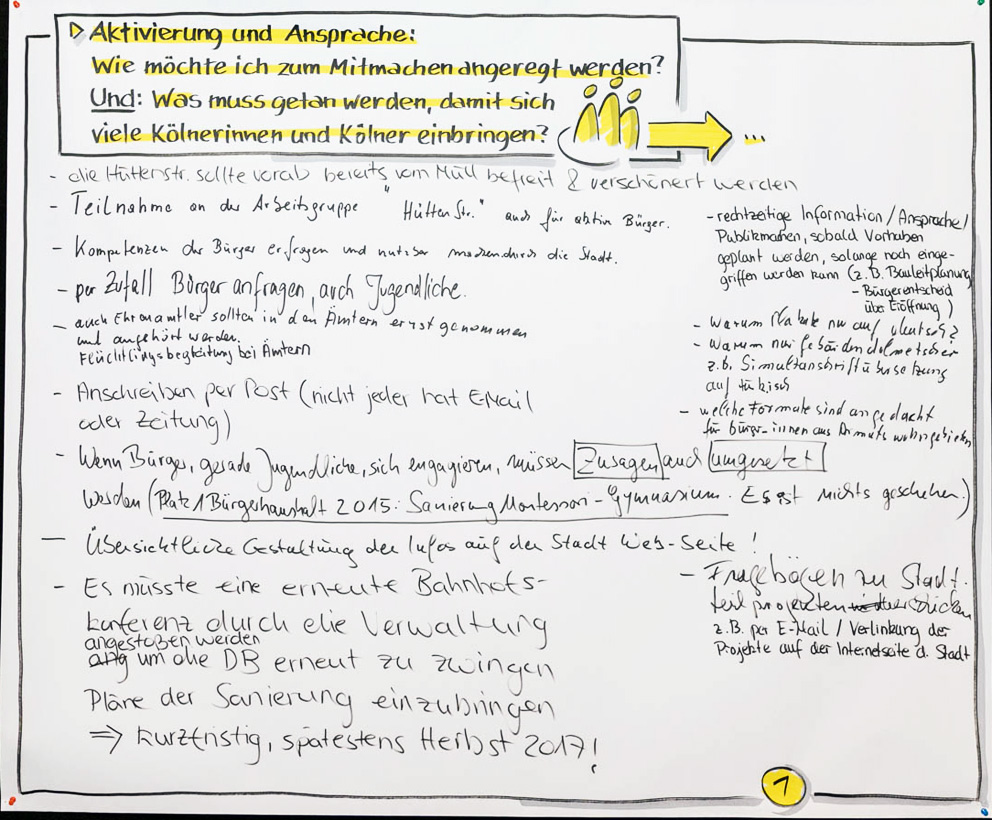 ▷ Aktivierung und Ansprache:
Wie möchte ich zum Mitmachen angeregt werden?
Und: Was muss getan werden, damit sich
viele Kölnerinnen und Kölner einbringen?
...
- die Hüttenstr. sollte vorab bereits vom Müll befreit & verschönert werden
- Teilnahme an der Arbeitsgruppe "Hütten Str." auch für aktive Bürger.
- Kompetenzen der Bürger erfragen und nutzbar machen durch die Stadt.
- per Zufall Bürger anfragen, auch Jugendliche.
- auch Ehrenamtler sollten in den Ämtern ernst genommen
und angehört werden.
Flüchtlingsbegleitung bei Ämtern
- Anschreiben per Post (nicht jeder hat E-Mail
oder Zeitung)
- Wenn Bürger, gerade Jugendliche, sich engagieren, müssen Zusagen auch umgesetzt
werden (Platz 1 Bürgerhaushalt 2015: Sanierung Montessori-Gymnasium. Es ist nichts geschehen.)
- Übersichtliche Gestaltung der Infos auf der Stadt Web-Seite!
- Es müsste eine erneute Bahnhofs-
konferenz durch die Verwaltung
angestoßen werden
um die DB erneut zu zwingen
Pläne der Sanierung einzubringen
⇒ kurzfristig, spätestens Herbst 2017!
- rechtzeitige Information/Ansprache/
Publikmachen, sobald Vorhaben
geplant werden, solange noch einge-
griffen werden kann (z.B. Bauleitplanung
- Bürgerentscheid
über Eröffnung)
- Warum Plakate nur auf deutsch?
- Warum nur Gebärdendolmetscher
z.b. Simultanschriftübersetzung
auf türkisch
- welche Formate sind angedacht
für Bürger-innen aus Armutswohngebieten
- Fragebögen zu Stadt-
teilprojekten schicken
z.B. per E-Mail / Verlinkung der
Projekte auf der Internetseite d. Stadt
1